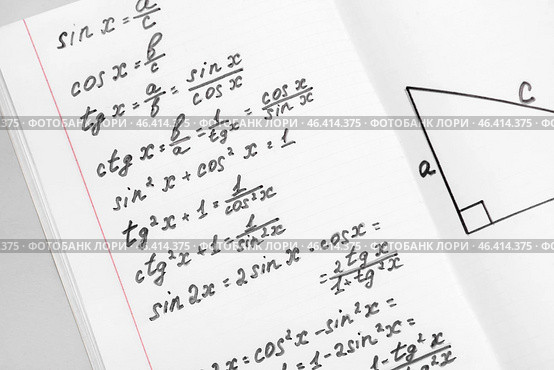 sin x = a/c
cos x = b/c
tg x = a/b = sin x/cos x
ctg x = b/a = 1/tg x = cos x/sin x
sin² x + cos² x = 1
tg² x + 1 = 1/cos² x
ctg² x + 1 = 1/sin² x
sin 2x = 2 sin x · cos x =
= 2 tg x/1 + tg² x
² x = cos² x - sin² x =
= 1 - 2 sin² x =
1 - tg² x
tg² x
c
a
375 · ФОТОБАНК ЛОРИ · 46.414.375 · ФОТОБАНК ЛОРИ · 46.414.375 · ФОТОБАНК ЛОРИ · 46.414.375 · ФОТОБАНК
375 · ФОТОБАНК ЛОРИ · 46.414.375 · ФОТОБАНК ЛОРИ · 46.414.375 · ФОТОБАНК ЛОРИ · 46.414.375 · ФОТОБАНК